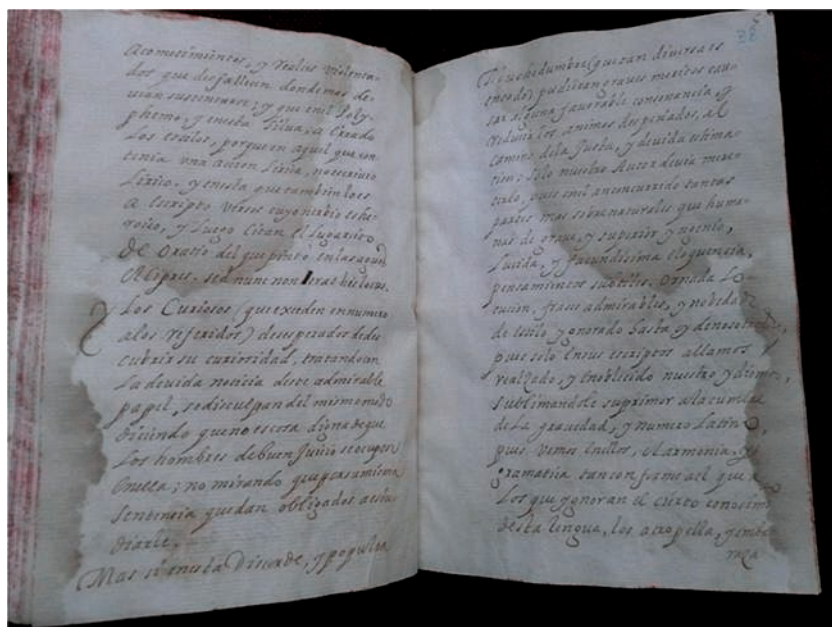 Acometimientos, y realces violenta-
dos que desfallecen donde mas de-
uian sustentarse; y que en el Poly-
phemo, y en esta Silua, a
los estilos, porque en aquel que con-
tenia vna accion Lirica, no escriuio
Lirico, y en esta que tambien lo es
a escripto versos cuyo nerbio es he-
roico, y Luego citan el Lugar
de Oratio del que pinto en las aguas
Sed nunc non erat his locus.
Los Curiosos (que exceden en numero
a los referidos) desesperados de des-
cubrir su curiosidad, tratando en
La devida noticia deste admirable
papel, se disculpan del mismo modo
diciendo que no es cosa digna de que
Los hombres de buen Juicio se ocupen
en ella; no mirando que por su misma
sentencia quedan obligados a estu-
diarle.
Mas si en esta Discorde, y popular
38
Muchedumbre (que tan diversa es
en todo) pudieran graues meritos cau-
sar alguna fauorable consonancia, y
reducir los animos despeñados, al
camino de la Justa, y devida estima-
cion: Solo nuestro Autor devia mere-
cerlo, pues en el an concurrido tantas
partes mas sobrenaturales que huma-
nas de graue, y superior yngenio,
Lucida, y facundissima eloquencia,
pensamientos subtiles. Ornada Lo-
cucion, frases admirables, y nobedad
de estilo ygnorado hasta oy de nosotros,
pues solo en sus escriptos allamos
realzado, y Ennoblecido nuestro ydioma,
sublimandole su primor a la cumbre
de La grauedad, y numero Latino,
pues vemos en ellos, el Armonia, y
gramatica tan conforme a el que a
Los que ygnoran el cierto
desta Lengua, los atropella, y emba-
raza